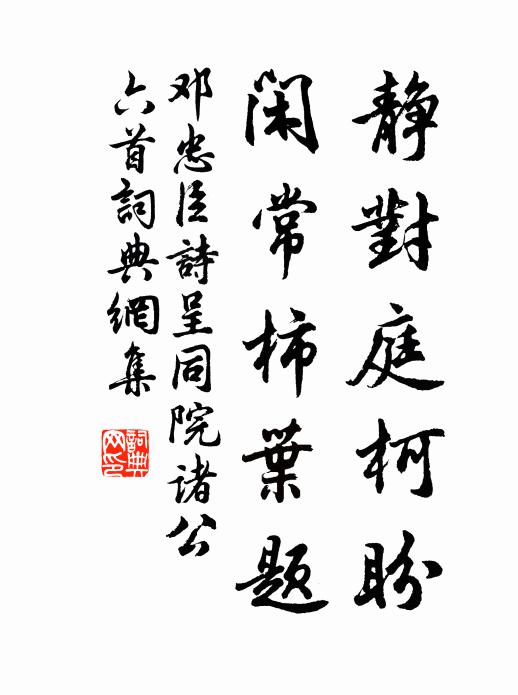 靜對庭柯盼
閑常柿葉題
邓忠臣詩呈同院诸公
六首詞典網集
詞典网印